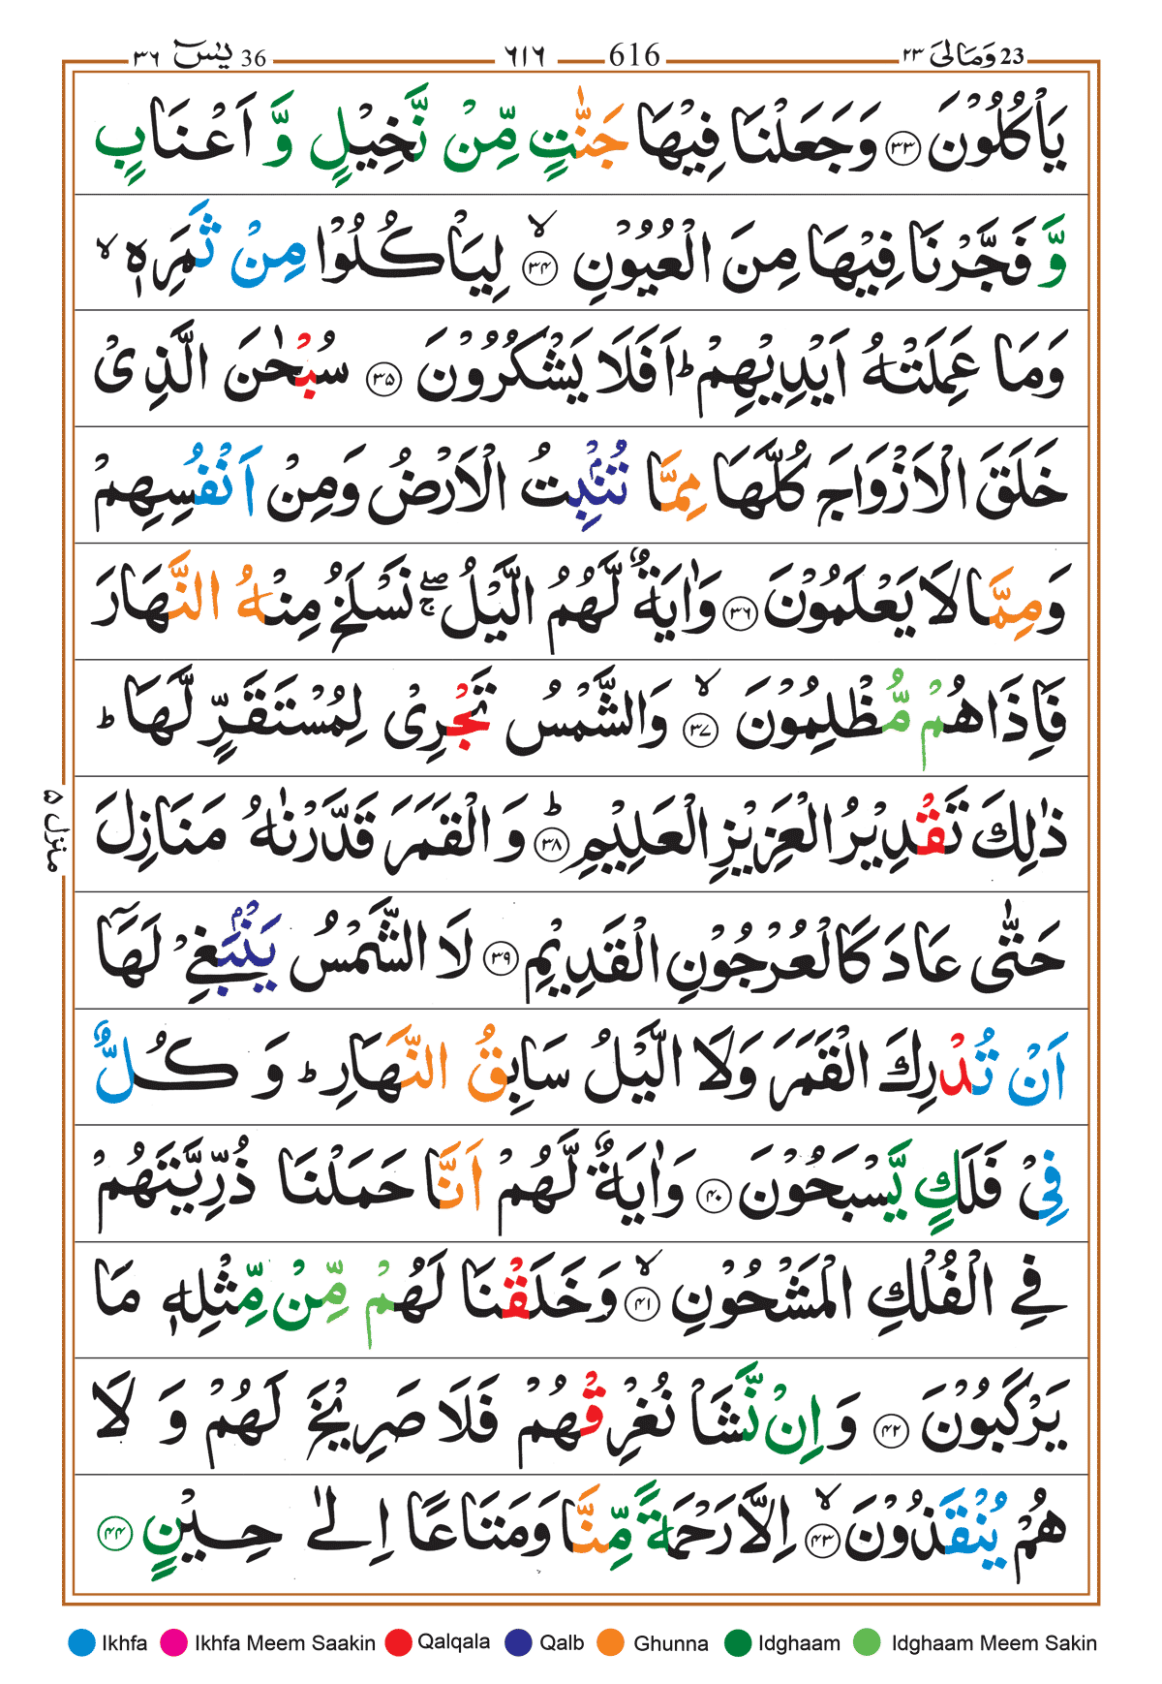 36 يٰسٓ ٣٦ 616 ٦١٦ 23 وَمَالِىَ ٢٣
يَاْكُلُوْنَ ﴿٣٣﴾ وَجَعَلْنَا فِيْهَا جَنّٰتٍ مِّنْ نَّخِيْلٍ وَّ اَعْنَابٍ
وَّ فَجَّرْنَا فِيْهَا مِنَ الْعُيُوْنِ ۙ﴿٣٤﴾ لِيَاْكُلُوْا مِنْ ثَمَرِهٖ ۙ
وَمَا عَمِلَتْهُ اَيْدِيْهِمْ ؕ اَفَلَا يَشْكُرُوْنَ ﴿٣٥﴾ سُبْحٰنَ الَّذِىْ
خَلَقَ الْاَزْوَاجَ كُلَّهَا مِمَّا تُنْۢبِتُ الْاَرْضُ وَمِنْ اَنْفُسِهِمْ
وَمِمَّا لَا يَعْلَمُوْنَ ﴿٣٦﴾ وَاٰيَةٌ لَّهُمُ الَّيْلُ ۖۚ نَسْلَخُ مِنْهُ النَّهَارَ
فَاِذَا هُمْ مُّظْلِمُوْنَ ۙ﴿٣٧﴾ وَالشَّمْسُ تَجْرِىْ لِمُسْتَقَرٍّ لَّهَا ؕ
ذٰلِكَ تَقْدِيْرُ الْعَزِيْزِ الْعَلِيْمِ ؕ﴿٣٨﴾ وَالْقَمَرَ قَدَّرْنٰهُ مَنَازِلَ
حَتّٰى عَادَ كَالْعُرْجُوْنِ الْقَدِيْمِ ﴿٣٩﴾ لَا الشَّمْسُ يَنْۢبَغِىْ لَهَاۤ
اَنْ تُدْرِكَ الْقَمَرَ وَلَا الَّيْلُ سَابِقُ النَّهَارِ ؕ وَ كُلٌّ
فِىْ فَلَكٍ يَّسْبَحُوْنَ ﴿٤٠﴾ وَاٰيَةٌ لَّهُمْ اَنَّا حَمَلْنَا ذُرِّيَّتَهُمْ
فِى الْفُلْكِ الْمَشْحُوْنِ ۙ﴿٤١﴾ وَخَلَقْنَا لَهُمْ مِّنْ مِّثْلِهٖ مَا
يَرْكَبُوْنَ ﴿٤٢﴾ وَاِنْ نَّشَاْ نُغْرِقْهُمْ فَلَا صَرِيْخَ لَهُمْ وَ لَا
هُمْ يُنْقَذُوْنَ ۙ﴿٤٣﴾ اِلَّا رَحْمَةً مِّنَّا وَمَتَاعًا اِلٰى حِيْنٍ ﴿٤٤﴾
منزل ۵
Ikhfa Ikhfa Meem Saakin Qalqala Qalb Ghunna Idghaam Idghaam Meem Sakin